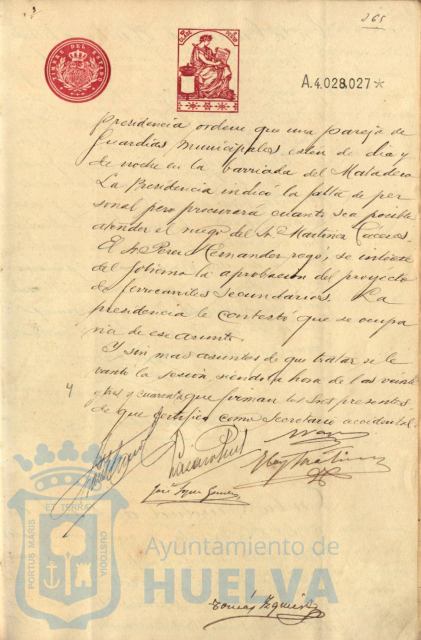 265
TIMBRE DEL ESTADO
A.4.028.027*
Presidencia ordene que una pareja de
Guardias Municipales esten de dia y
de noche en la barriada del Matadero
La Presidencia indicó la falta de per
sonal pero procurará cuanto sea posible
atender el ruego del Sr. Martinez
El Sr. Perez Hernandez rogó, se interese
del Gobierno la aprobacion del proyecto
de ferrocarriles secundarios. La
presidencia le contestó que se ocupa
ria de ese asunto.
Y sin mas asuntos de que tratar se le
vantó la sesión, siendo la hora de las veinte
y cuarenta que firman los Sres presentes
de que certifico como secretario accidental.
José Lopez Gomez
Tomás Izquierdo
ET TERRAE
PORTUS MARIS
CUSTODIA
Ayuntamiento de
HUELVA